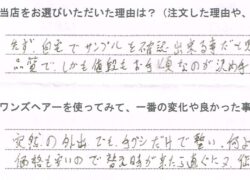 当店をお選びいただいた理由は？（注文した理由や、
まず、自宅でサンプルを確認出来る事だと
品質で、しかも価格もお手頃なのが決め手
ワンズヘアーを使ってみて、一番の変化や良かった事
突然の外出でも、手グシだけで整い、何よ
価格も安いので替え時が来たら直ぐに又